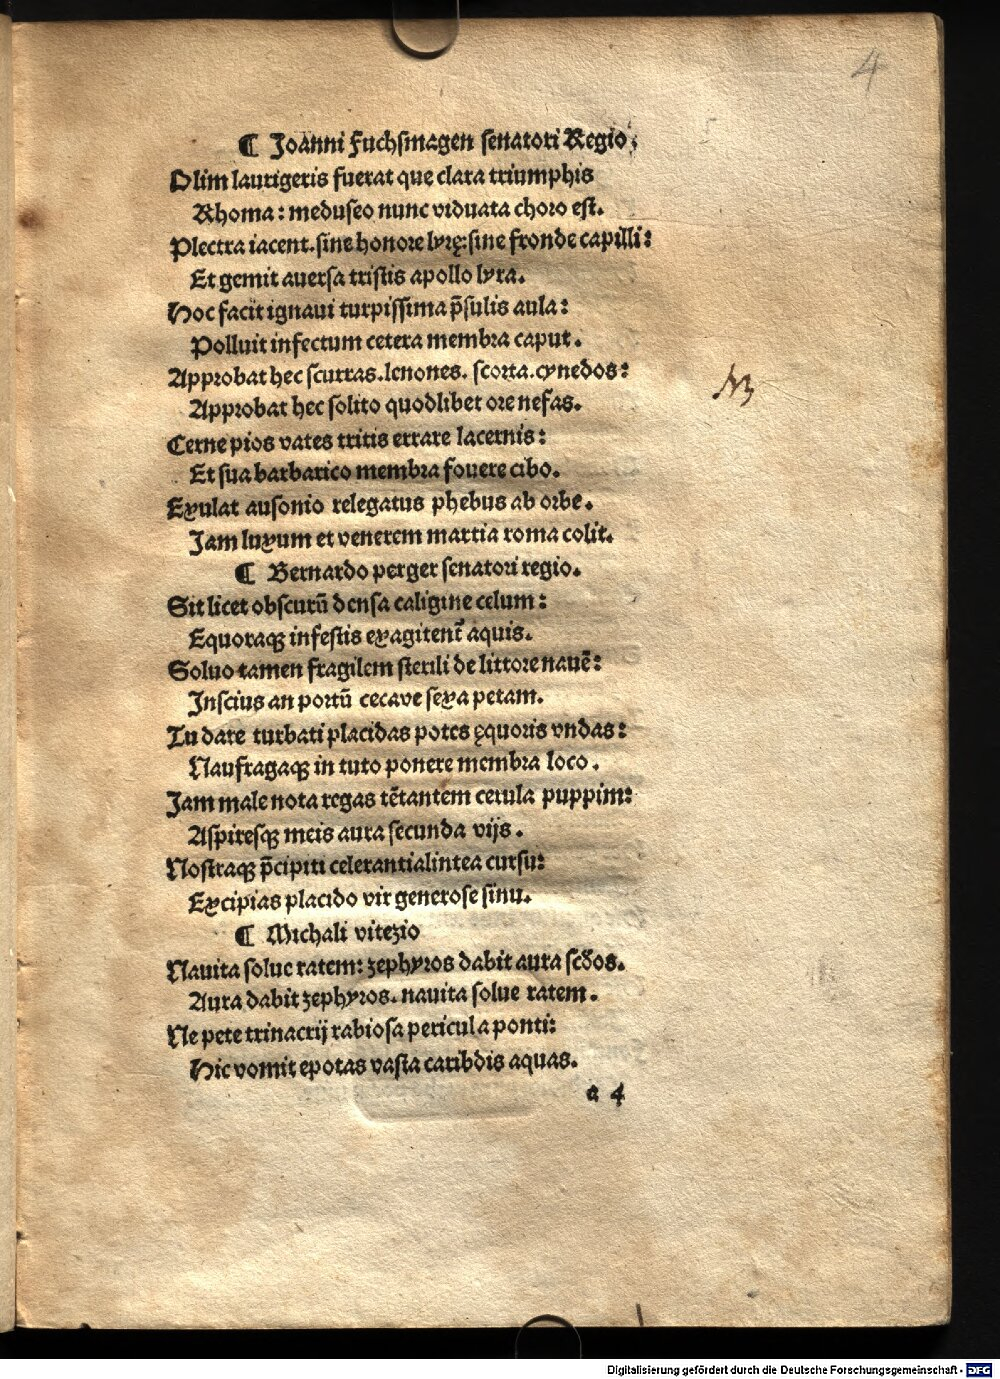 4
¶ Joanni Fuchsmagen senatori Regio.
Olim laurigeris fuerat que clara triumphis
Rhoma: meduseo nunc viduata choro est.
Plectra iacent. sine honore lyrę: sine fronde capilli:
Et gemit auersa tristis apollo lyra.
Hoc facit ignaui turpissima p̄sulis aula:
Polluit infectum cetera membra caput.
Approbat hec scurras. lenones. scorta. cynedos:
Approbat hec solito quodlibet ore nefas.
Cerne pios vates tritis errare lacernis:
Et sua barbarico membra fouere cibo.
Exulat ausonio relegatus phebus ab orbe.
Jam luxum et venerem martia roma colit.
¶ Bernardo perger senatori regio.
Sit licet obscurū densa caligine celum:
Equoraqꝫ infestis exagitent᷑ aquis.
Soluo tamen fragilem sterili de littore nauē:
Inscius an portū cecave sexa petam.
Tu dare turbati placidas potes ęquoris vndas:
Naufragaqꝫ in tuto ponere membra loco.
Jam male nota regas tētantem cerula puppim:
Aspiresqꝫ meis aura secunda vijs.
Nostraqꝫ p̄cipiti celerantia lintea cursu:
Excipias placido vir generose sinu.
¶ Michali vitezio
Nauita solue ratem: zephyros dabit aura scd̄os.
Aura dabit zephyros. nauita solue ratem.
Ne pete trinacrij rabiosa pericula ponti:
Hic vomit epotas vasta caribdis aquas.
a 4
Digitalisierung gefördert durch die Deutsche Forschungsgemeinschaft - DFG